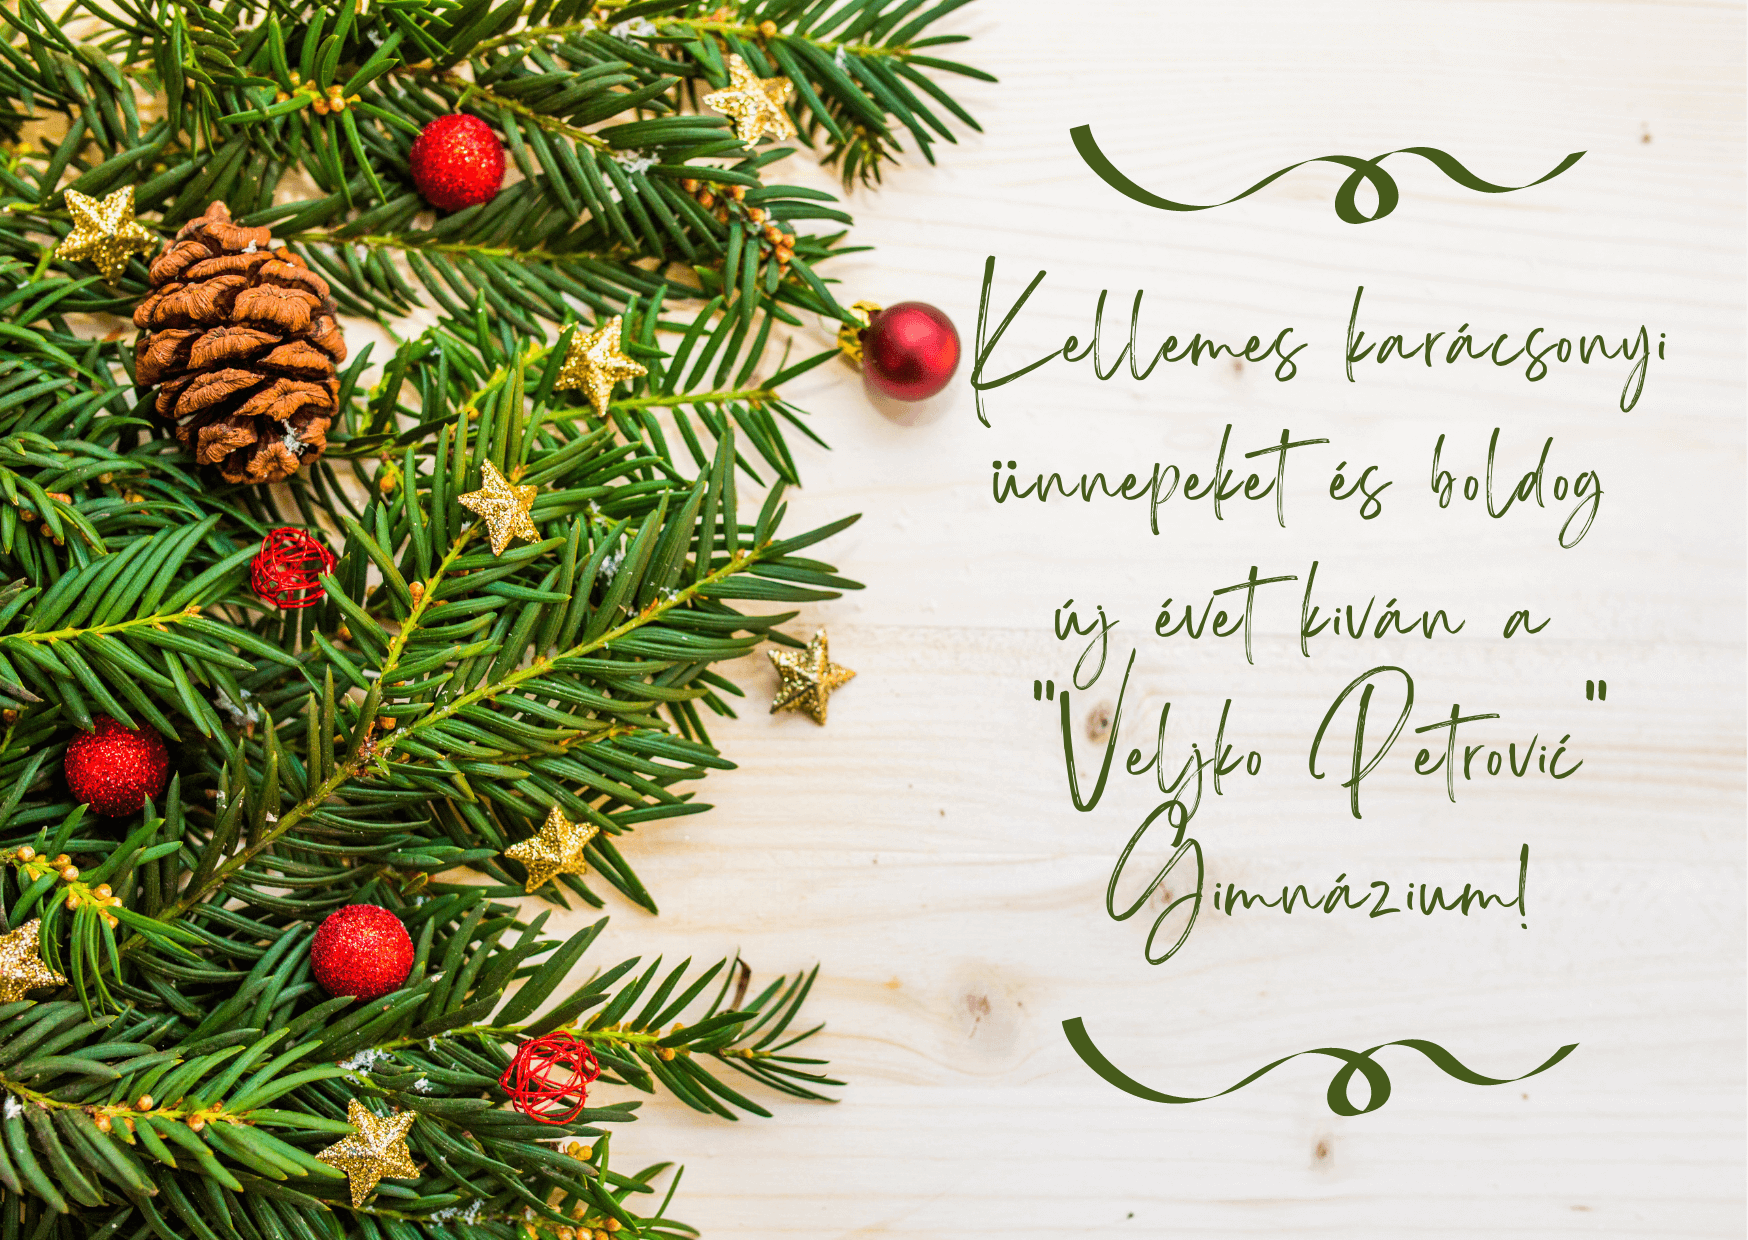 Kellemes karácsonyi
ünnepeket és boldog
új évet kíván a
"Veljko Petrović"
Gimnázium!